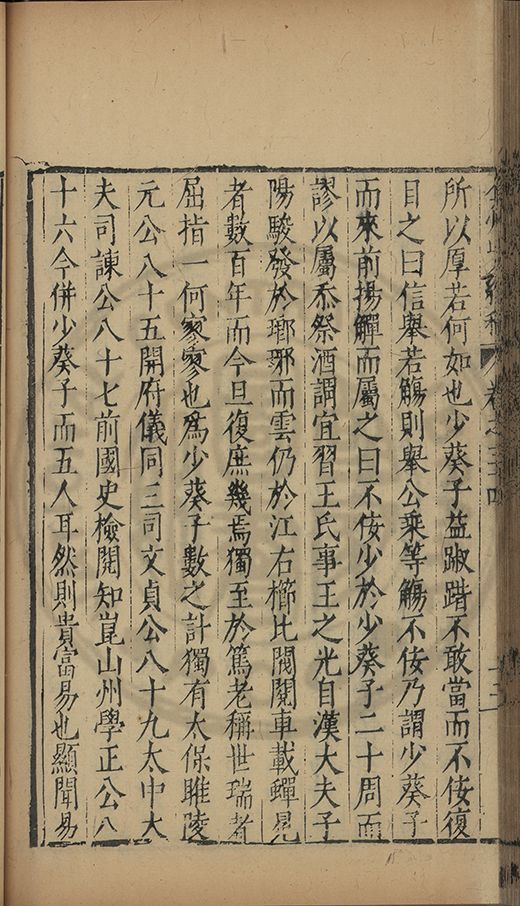 所以厚若何如也少葵子益踧踖不敢當而不佞復
目之曰信舉若觴則舉公乘等觴不佞乃謂少葵子
而來前揚觶而屬之曰不佞少於少葵子二十周而
謬以屬忝祭酒謂宜習王氏事王之光自漢大夫子
陽駿發於瑯琊而雲仍於江右櫛比閥閱車載蟬冕
者數百年而今旦復庶幾焉獨至於篤老稱世瑞者
屈指一何寥寥也爲少葵子數之計獨有太保睢陵
元公八十五開府儀同三司文貞公八十九太中大
夫司諫公八十七前國史檢閱知崑山州學正公八
十六今併少葵子而五人耳然則貴富易也顯聞易
卷之三十四